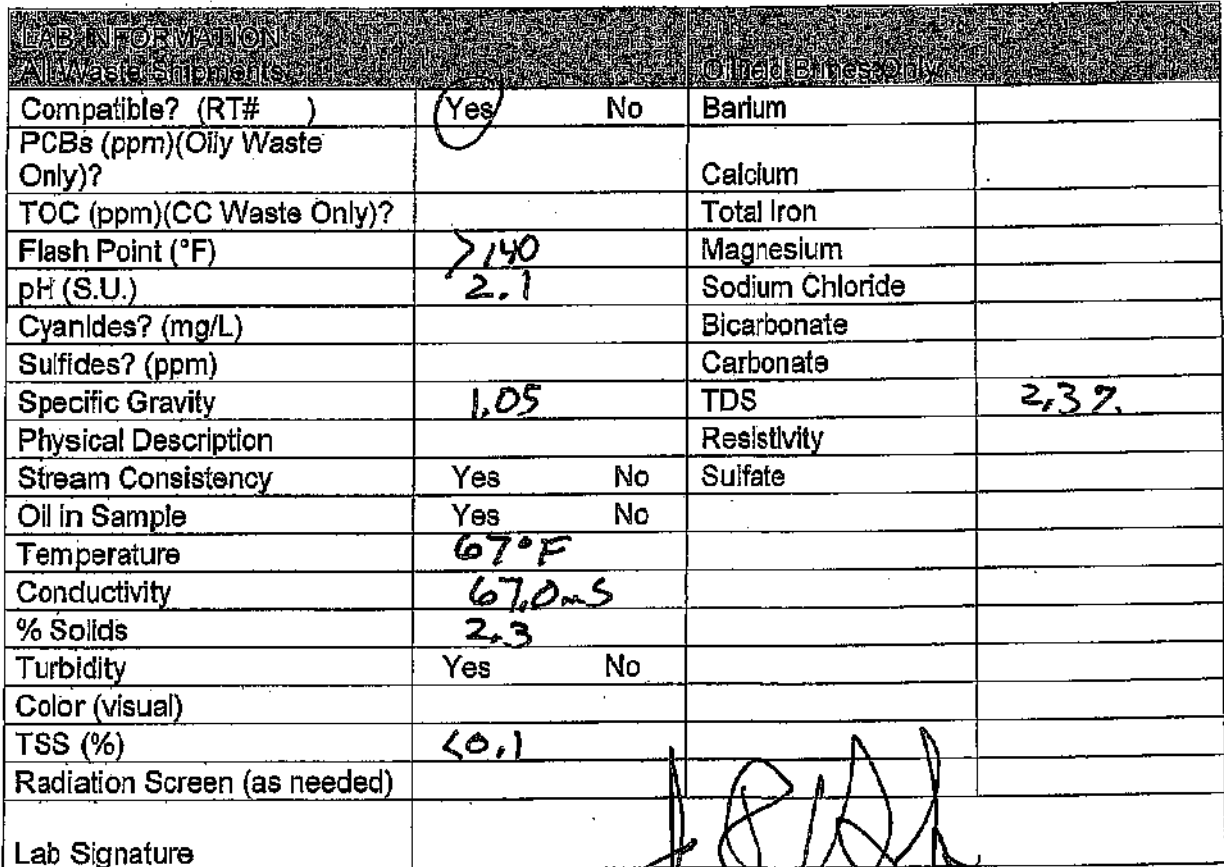 LAB INFORMATION
All Waste Shipments Oilfield Brines Only
Compatible? (RT# ) Yes No Barium
PCBs (ppm)(Oily Waste
Only)? Calcium
TOC (ppm)(CC Waste Only)? Total Iron
Flash Point (°F) >140 Magnesium
pH (S.U.) 2.1 Sodium Chloride
Cyanides? (mg/L) Bicarbonate
Sulfides? (ppm) Carbonate
Specific Gravity 1.05 TDS 2.3%
Physical Description Resistivity
Stream Consistency Yes No Sulfate
Oil in Sample Yes No
Temperature 67°F
Conductivity 67.0mS
% Solids 2.3
Turbidity Yes No
Color (visual)
TSS (%) <0.1
Radiation Screen (as needed)
Lab Signature